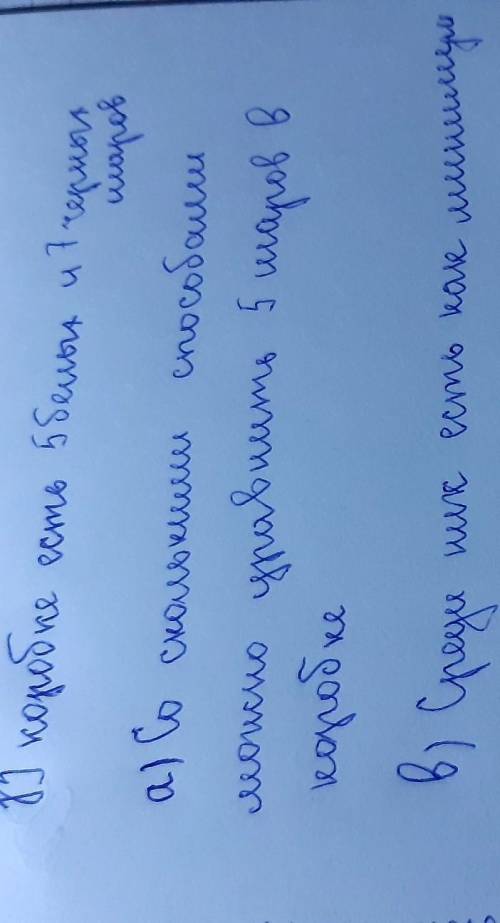 коробке есть 5 белых и 7 черных
шаров
а) Со сколькими способами
можно уравнить 5 шаров в
коробке
в) Среди них есть как минимум